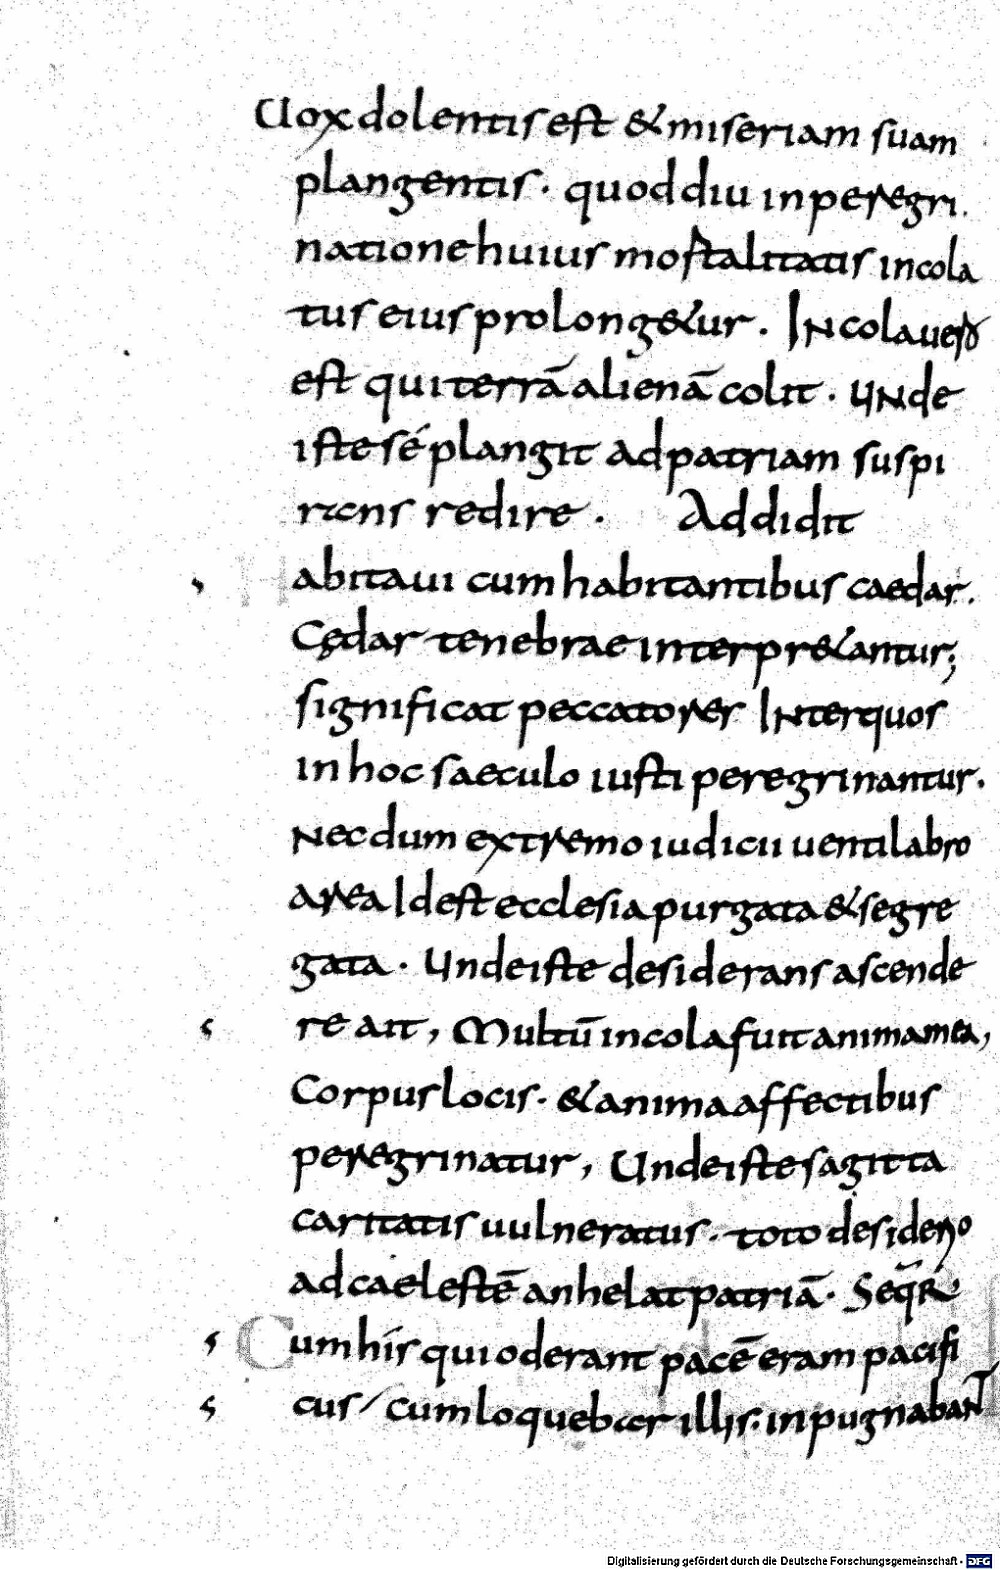 Uox dolentis est & miseriam suam
plangentis · quod diu in peregri
natione huius mortalitatis incola
tus eius prolong&ur . Incola uero
est qui terrā alienā colit . Unde
iste sé plangit ad patriam suspi
rans redire . Addidit
abitaui cum habitantibus caedar .
Cędar tenebrae interpr&antur;
significat peccatores Inter quos
in hoc saeculo iusti peregrinantur .
Necdum extremo iudicii uentilabro
area Id est ecclesia purgata & segre
gata . Unde iste desiderans ascende
re ait , Multū incola fuit anima mea ,
Corpus locis · & anima affectibus
peregrinatur , Unde iste sagitta
caritatis uulneratus · toto desiderio
ad caelestē anhelat patriā . Seq̄R
Cum hís qui oderant pacē eram pacifi
cus / cum loquebar illis : inpugnabaNT
Digitalisierung gefördert durch die Deutsche Forschungsgemeinschaft - DFG